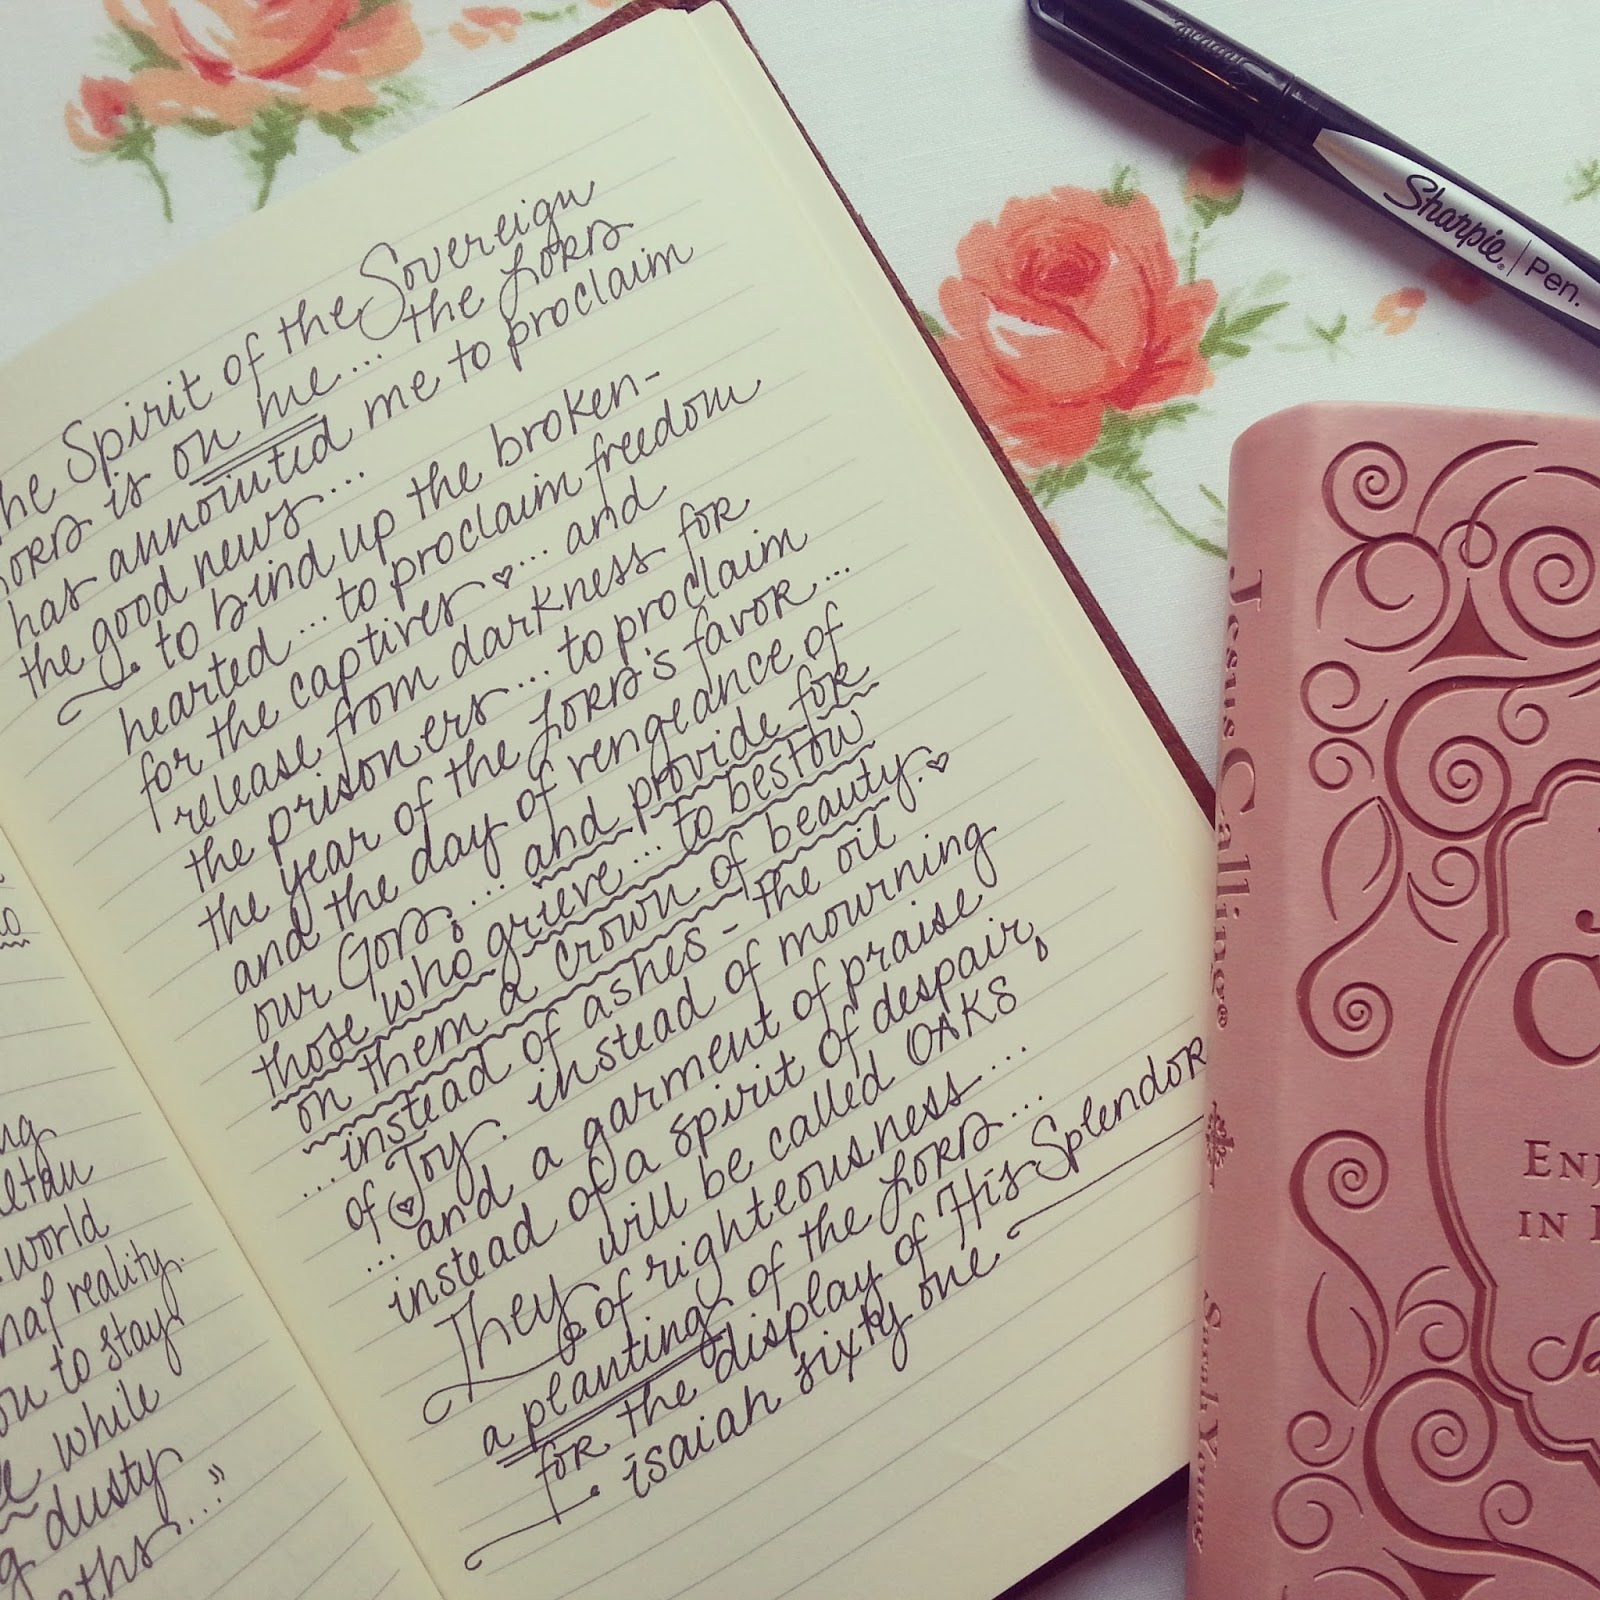 he Spirit of the Sovereign
Lord is on me... the Lord
has annointed me to proclaim
the good news...
to bind up the broken-
hearted... to proclaim freedom
for the captives ♡... and
release from darkness for
the prisoners... to proclaim
the year of the Lord's favor...
and the day of vengeance of
our God, ... and provide for
those who grieve... to bestow
on them a crown of beauty. ♡
... instead of ashes - the oil
of Joy. instead of mourning
... and a garment of praise
instead of a spirit of despair,
They will be called OAKS
of righteousness...
a planting of the Lord...
for the display of His Splendor
isaiah sixty one
ug
world
nal reality.
ou to stay
while
g dusty
aths..."
Sharpie® | Pen.
Jesus Calling®
Sarah Young
J
C
Enj
in
Sa